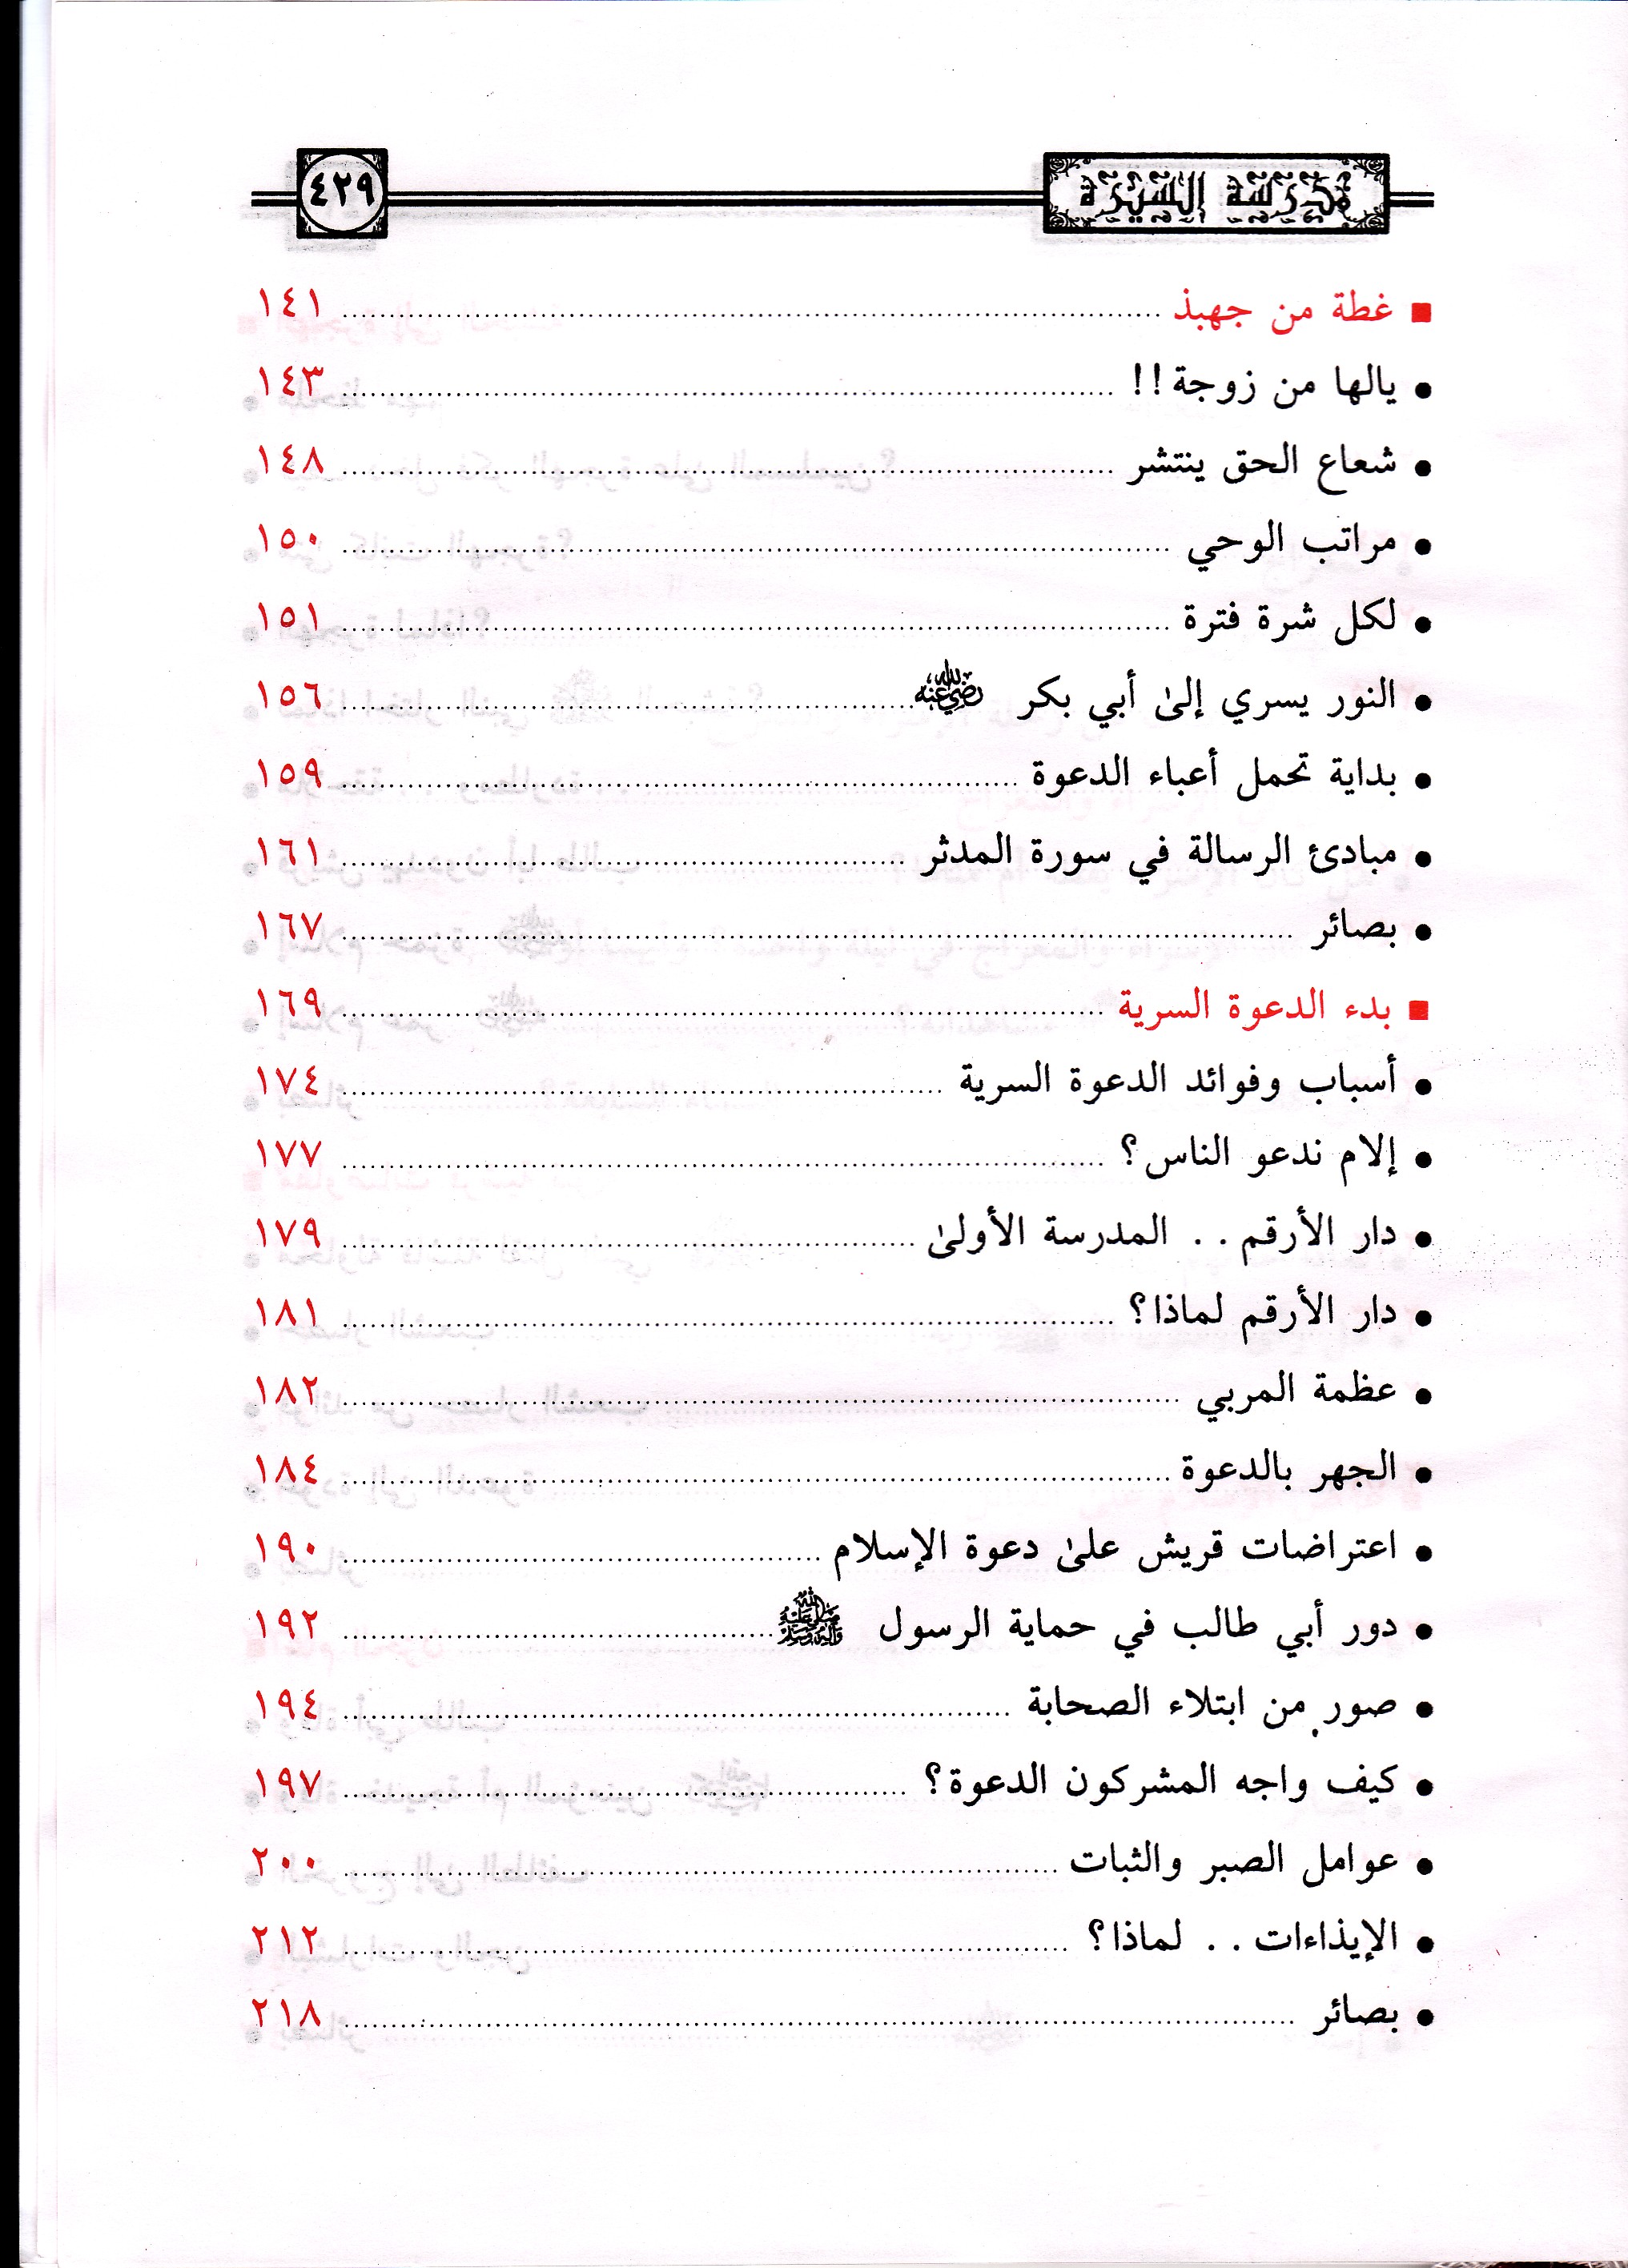 مدرسة السيرة ٤٢٩
■ غطة من جهبذ ........ ١٤١
● يالها من زوجة!! ........ ١٤٣
● شعاع الحق ينتشر ........ ١٤٨
● مراتب الوحي ........ ١٥٠
● لكل شرة فترة ........ ١٥١
● النور يسري إلىٰ أبي بكر رضي الله عنه ........ ١٥٦
● بداية تحمل أعباء الدعوة ........ ١٥٩
● مبادئ الرسالة في سورة المدثر ........ ١٦١
● بصائر ........ ١٦٧
■ بدء الدعوة السرية ........ ١٦٩
● أسباب وفوائد الدعوة السرية ........ ١٧٤
● إلام ندعو الناس؟ ........ ١٧٧
● دار الأرقم . . المدرسة الأولىٰ ........ ١٧٩
● دار الأرقم لماذا؟ ........ ١٨١
● عظمة المربي ........ ١٨٢
● الجهر بالدعوة ........ ١٨٤
● اعتراضات قريش علىٰ دعوة الإسلام ........ ١٩٠
● دور أبي طالب في حماية الرسول صلى الله عليه وآله وسلم ........ ١٩٢
● صور من ابتلاء الصحابة ........ ١٩٤
● كيف واجه المشركون الدعوة؟ ........ ١٩٧
● عوامل الصبر والثبات ........ ٢٠٠
● الإيذاءات . . لماذا؟ ........ ٢١٢
● بصائر ........ ٢١٨